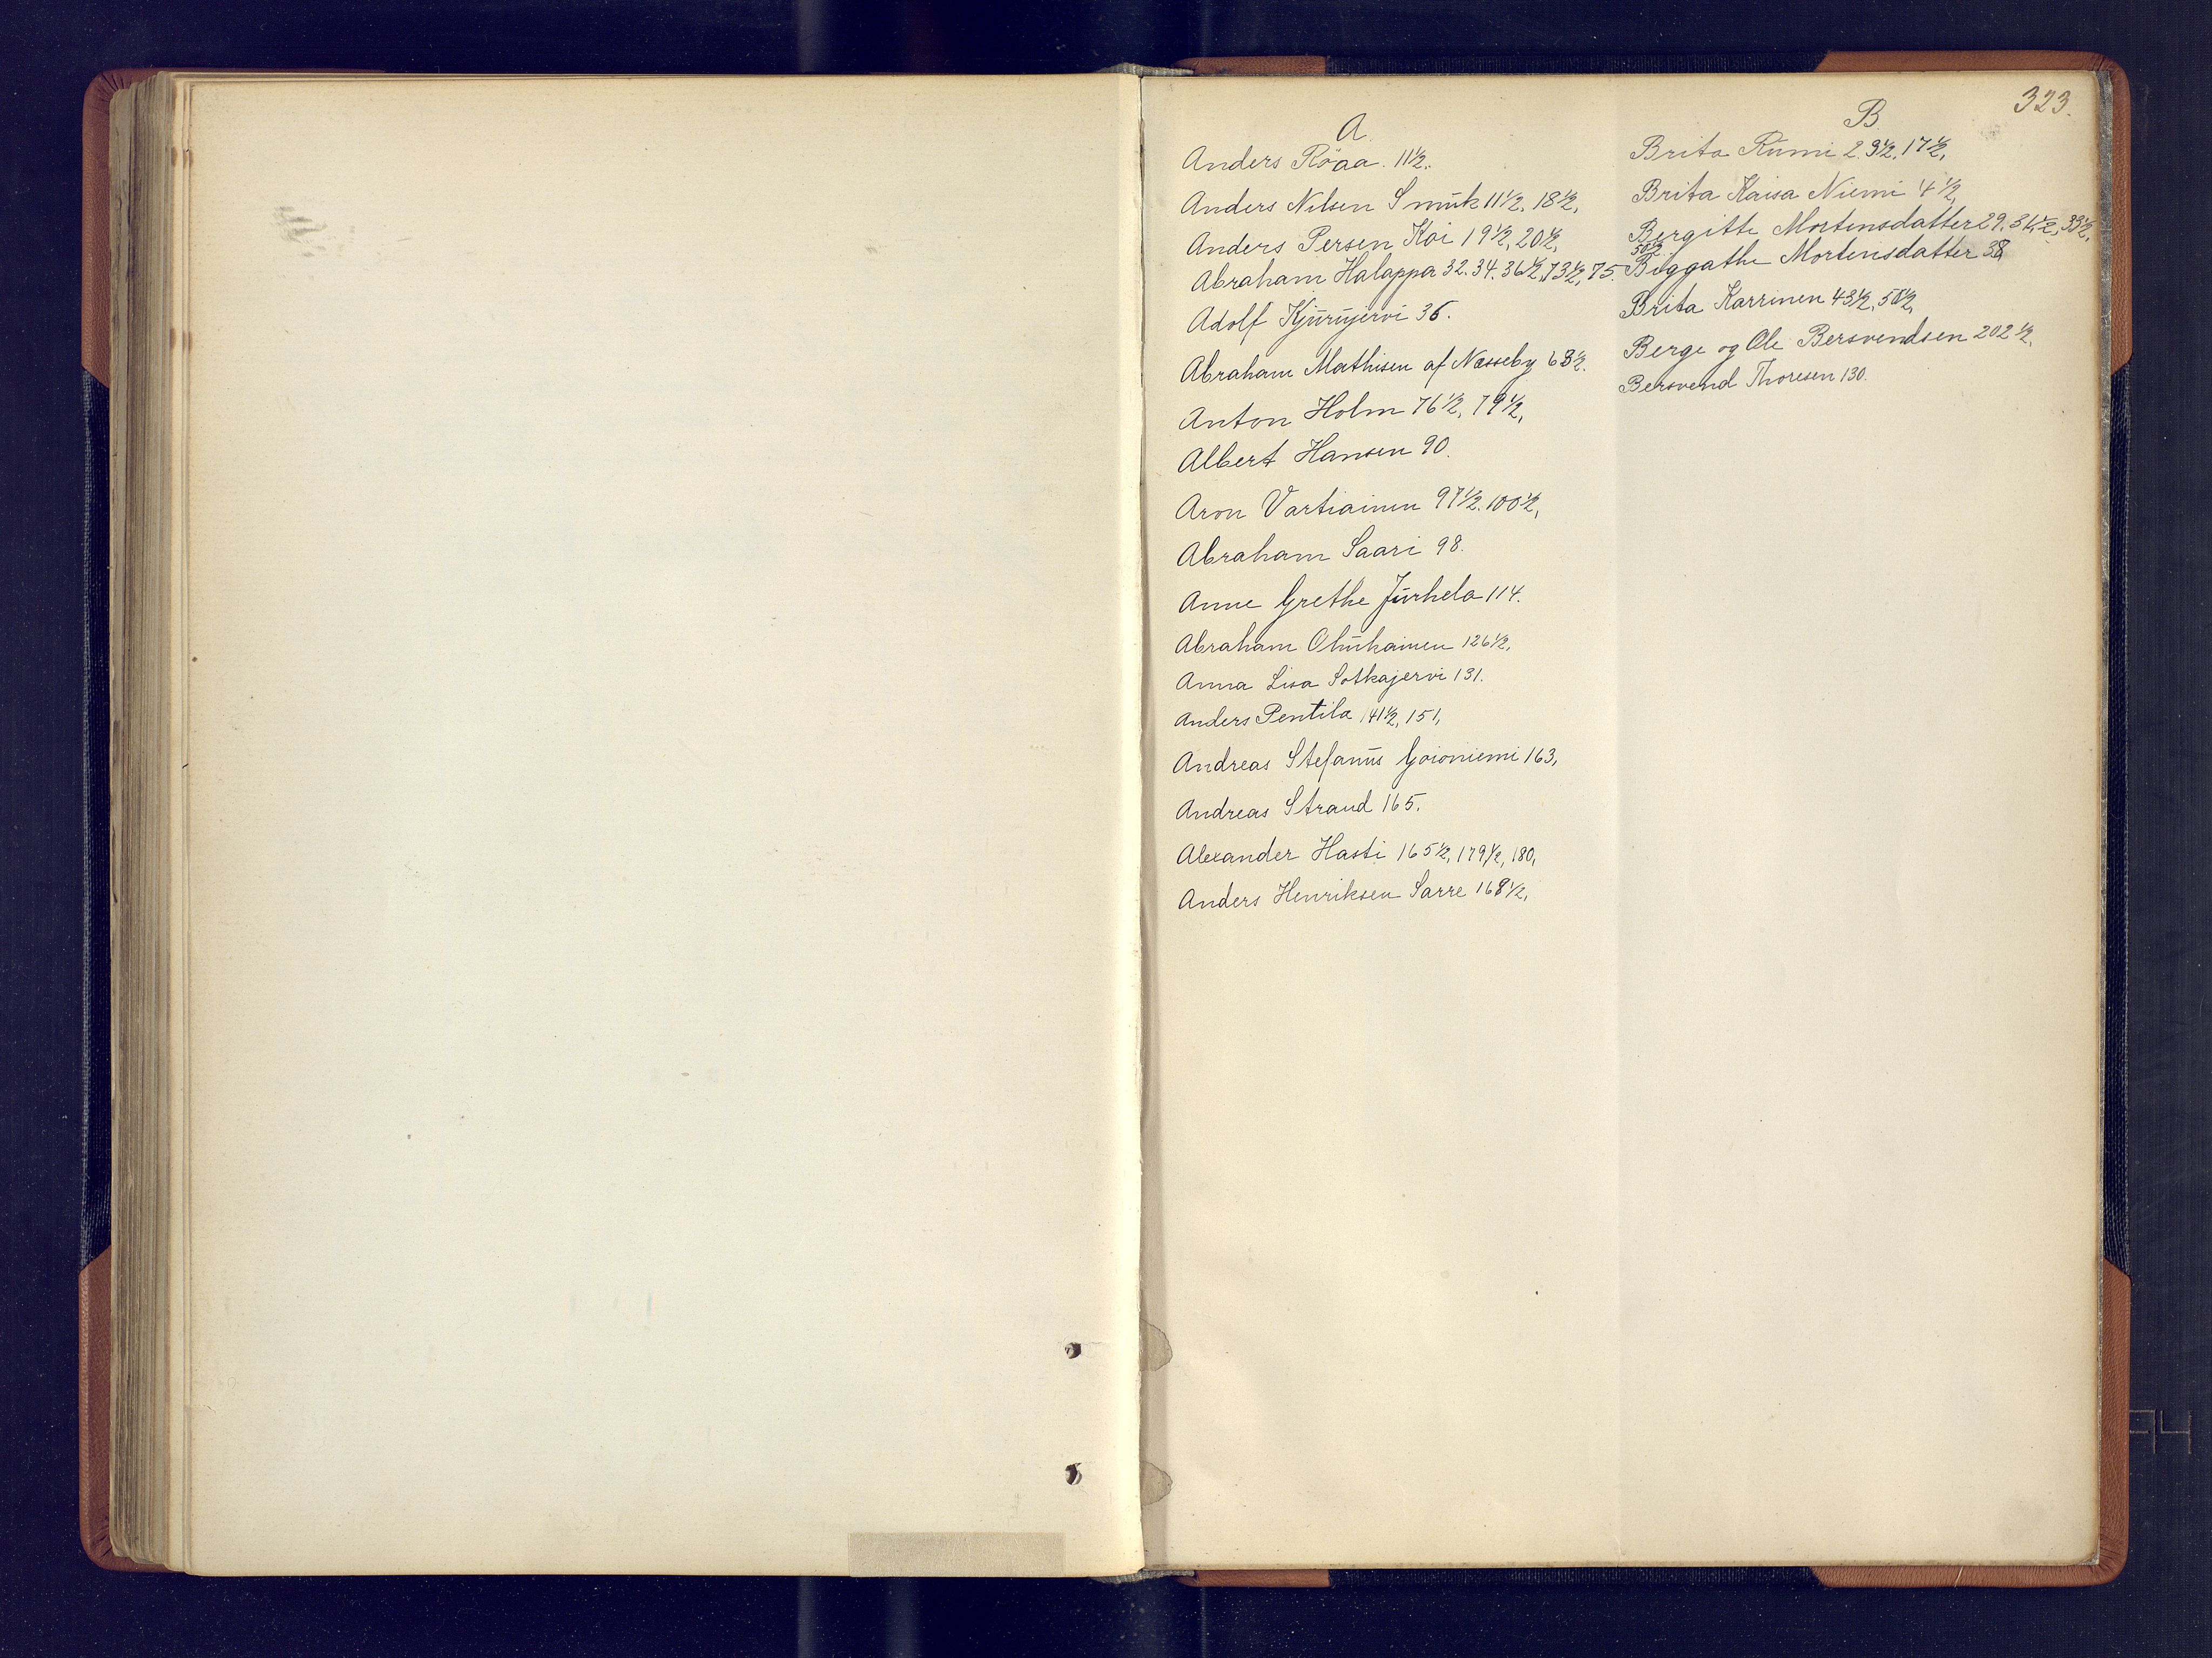 323.
A
Anders Röaa. 11½.
Anders Nilsen Smuk 11½, 18½,
Anders Persen Koi 19½, 20½,
Abraham Halappa 32. 34. 36½, 73½, 75.
Adolf Kjurujervi 36.
Abraham Mathisen af Næsseby 63½.
Anton Holm 76½, 79½,
Albert Hansen 90.
Aron Vartiainen 97½. 100½,
Abraham Saari 98.
Anne Grethe Jurhela 114.
Abraham 126½,
Anna Lisa Sotkajervi 131.
Anders Pentila 141½, 151,
Andreas Stefanus Goioniemi 163,
Andreas Strand 165.
Alexander Hasti 165½, 179½, 180,
Anders Henriksen Sarre 168½,
B
Brita Rumi 2. 3½, 17½,
Brita Kaisa Niemi 4½,
Bergitte Mortensdatter 29. 31½, 33½,
50½
Biggathe Mortensdatter 38
Brita Karrinen 43½, 50½,
Berge og Ole Bersvendsen 202½,
Bersvend Thoresen 130.